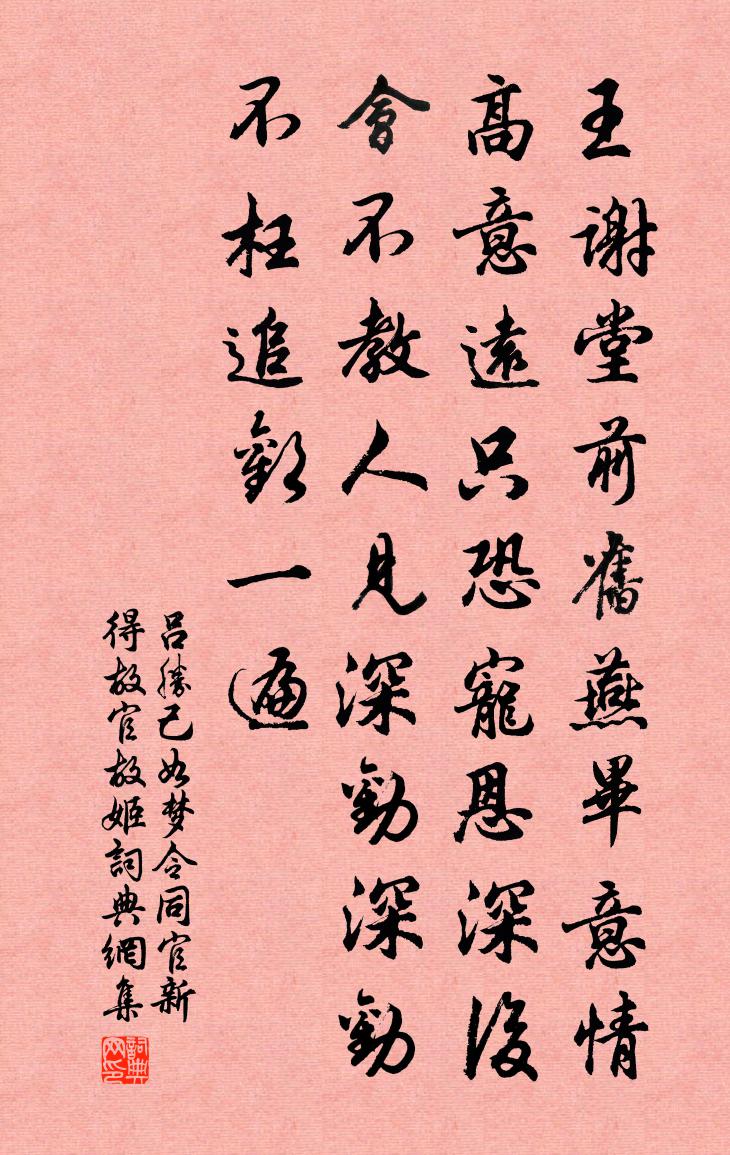 王謝堂前舊燕畢意情
高意遠只恐寵恩深後
會不教人見深勸深勸
不枉追歡一遍
呂勝己如梦令同官新
得故官故姬詞典網集
詞典网印